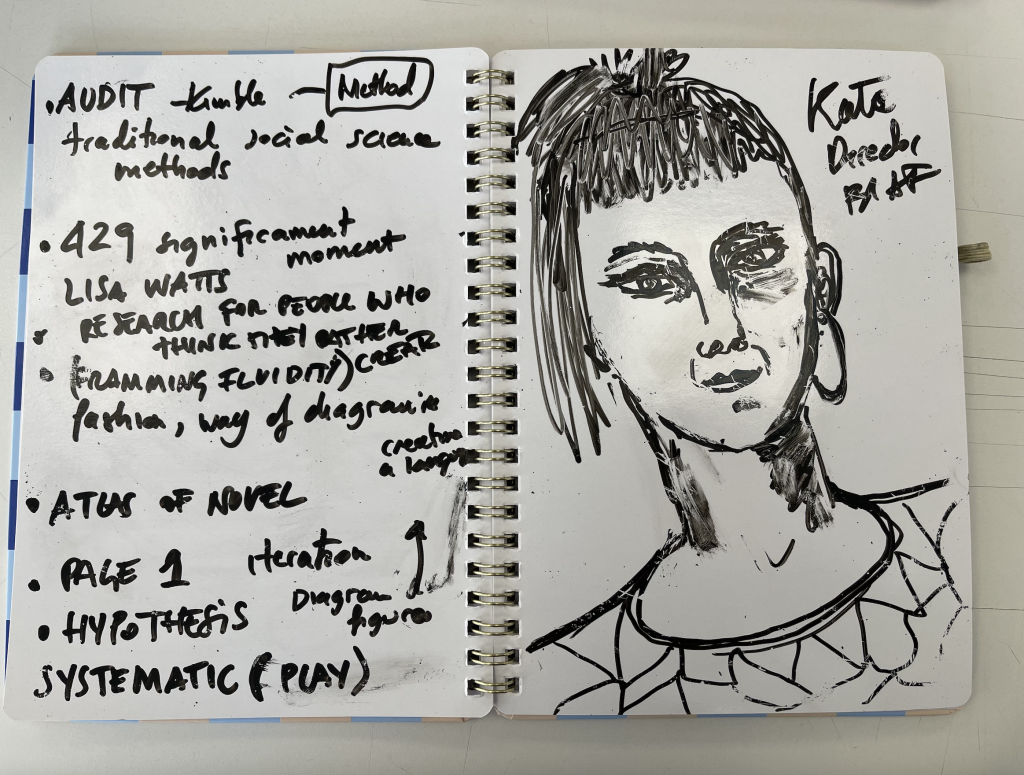 • AUDIT - Kimble - Method
traditional social science
methods
• 429 significament
moment
LISA WATTS
• RESEARCH FOR PEOPLE WHO
THINK THEY RATHER
CREAR
• (FRAMMING FLUIDITY)
fashion, way of diagramin
creation
a language
• ATLAS OF NOVEL
• PAGE 1
iteration
Diagram
figures
• HYPOTHESIS
SYSTEMATIC (PLAY)
Kate
Director